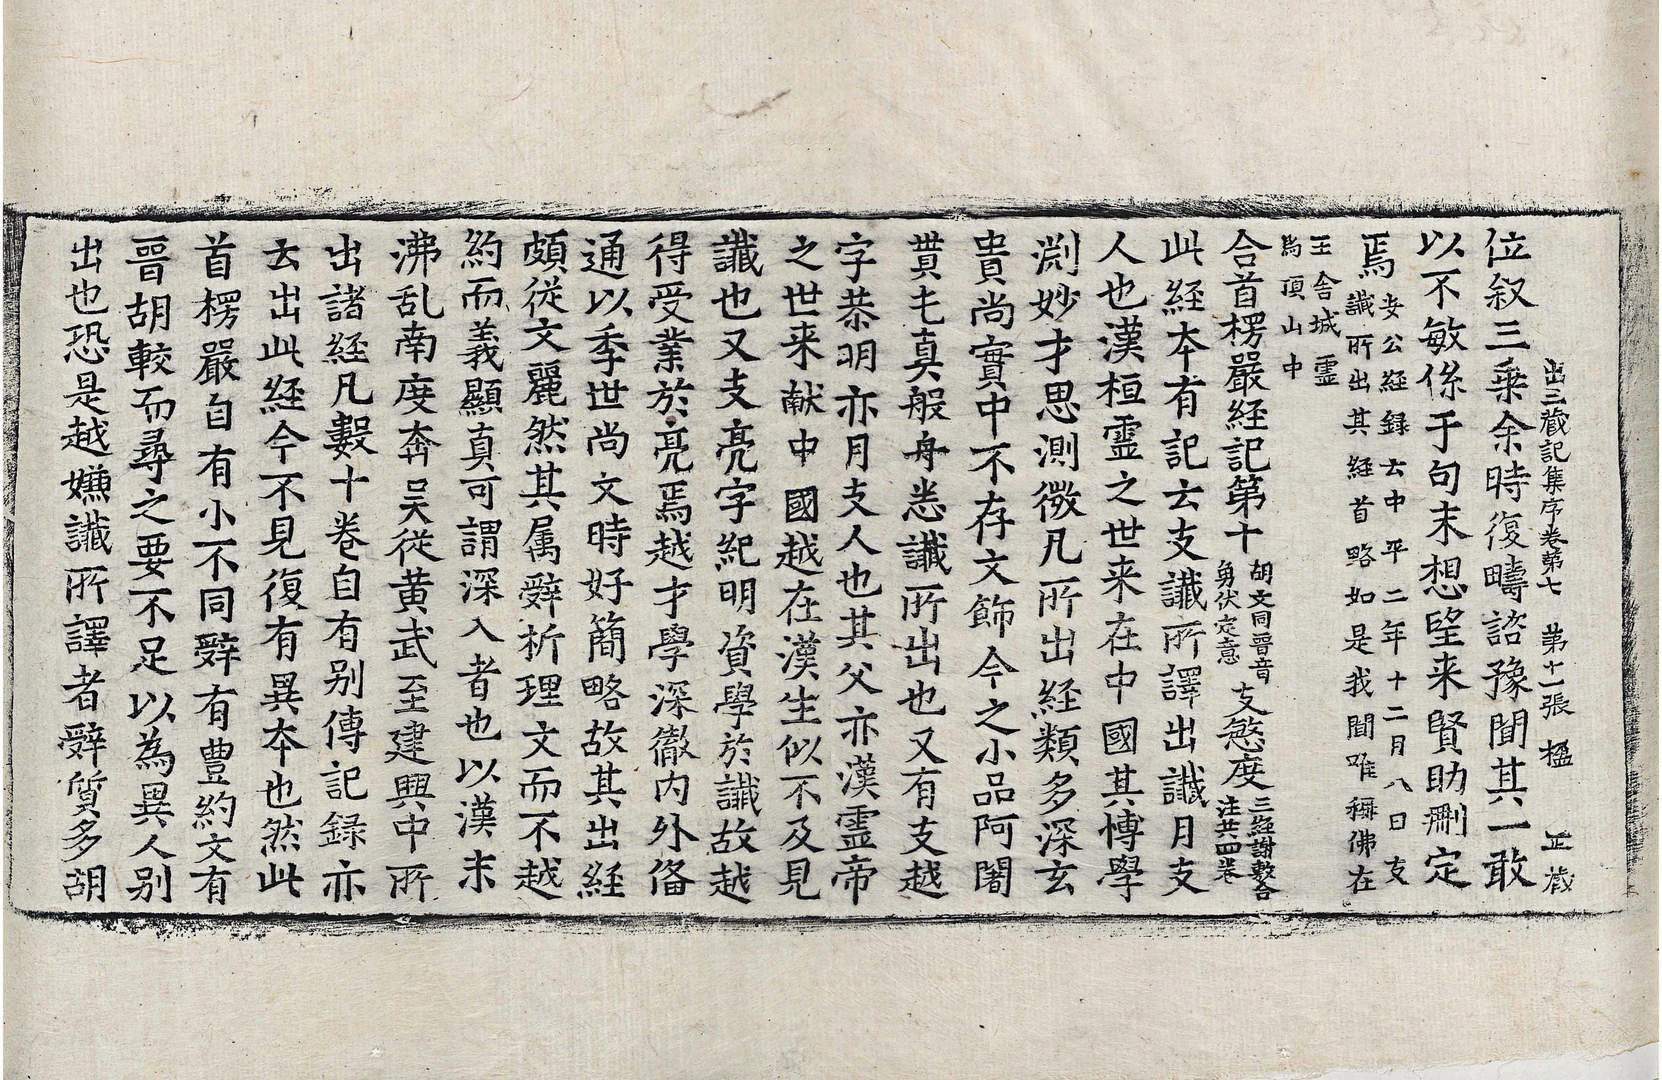 出三藏記集序卷第七 第十一張 楹 正藏
位叙三乗余時復疇諮豫聞其一敢
以不敏係于句末想望来賢助刪定
焉
安公経録云中平二年十二月八日支
讖所出其経首略如是我聞唯稱佛在
王舍城靈
鳥頂山中
合首楞嚴経記第十
胡文同晋音
勇伏定意
支慜度
三経謝敷合
注共四卷
此経本有記云支讖所譯出讖月支
人也漢桓靈之世来在中國其博學
淵妙才思測微凡所出経類多深玄
貴尚實中不存文飾今之小品阿闍
貰屯真般舟悉讖所出也又有支越
字恭明亦月支人也其父亦漢靈帝
之世来献中國越在漢生似不及見
讖也又支亮字紀明資學於讖故越
得受業於亮焉越才學深徹内外俻
通以季世尚文時好簡略故其出経
頗從文麗然其属辭析理文而不越
約而義顯真可謂深入者也以漢末
沸乱南度奔吴從黃武至建興中所
出諸経凡數十卷自有别傳記録亦
云出此経今不見復有異本也然此
首楞嚴自有小不同辭有豊約文有
晋胡較而尋之要不足以為異人别
出也恐是越嫌讖所譯者辭質多胡